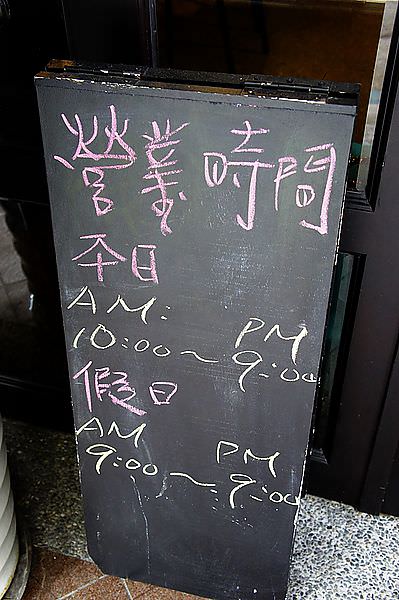 營業時間
平日
AM:
PM
10:00~9:00
假日
AM
PM
9:00~9:00